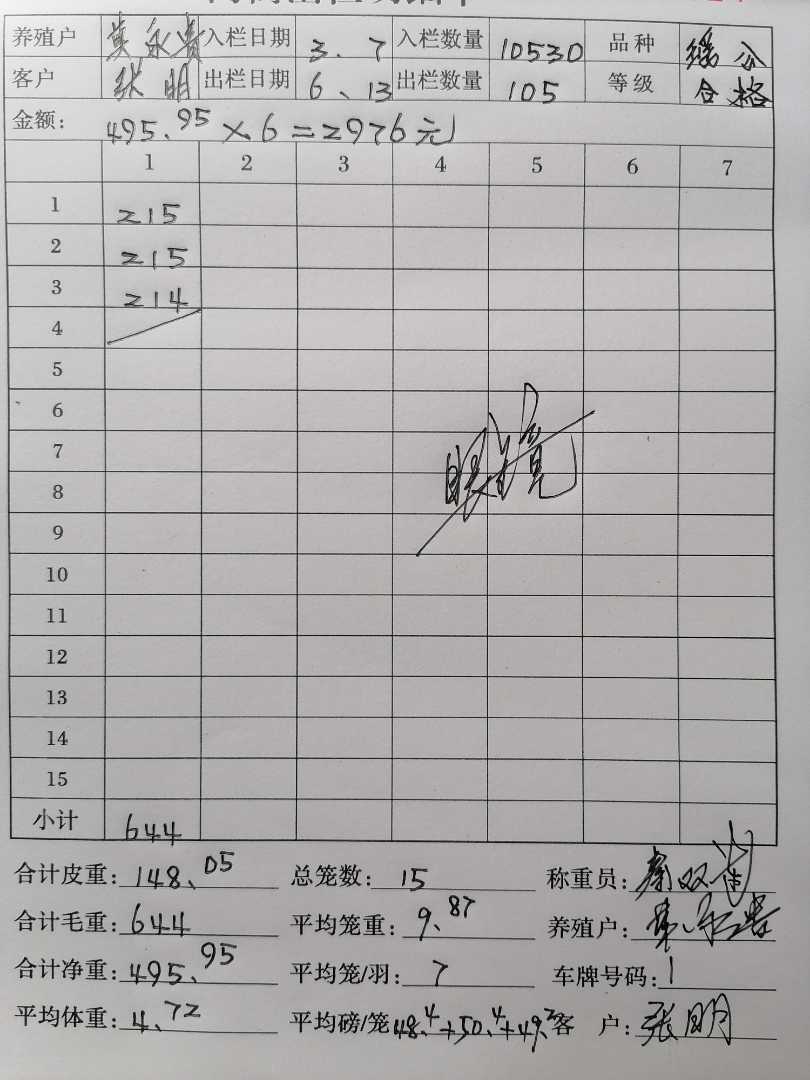 养殖户 黄永贵 入栏日期 3.7 入栏数量 10530 品种 瑶公
客户 张明 出栏日期 6、13 出栏数量 105 等级 合格
金额: 495.95 × 6 = 2976元
1 2 3 4 5 6 7
1 215
2 215
3 214
4
5
6
7
8
9
10
11
12
13
14
15
小计 644
合计皮重: 148.05 总笼数: 15 称重员:
合计毛重: 644 平均笼重: 9.87 养殖户: 黄永贵
合计净重: 495.95 平均笼/羽: 7 车牌号码: 1
平均体重: 4.72 平均磅/笼 48.4+50.4+49.2 客 户: 张明